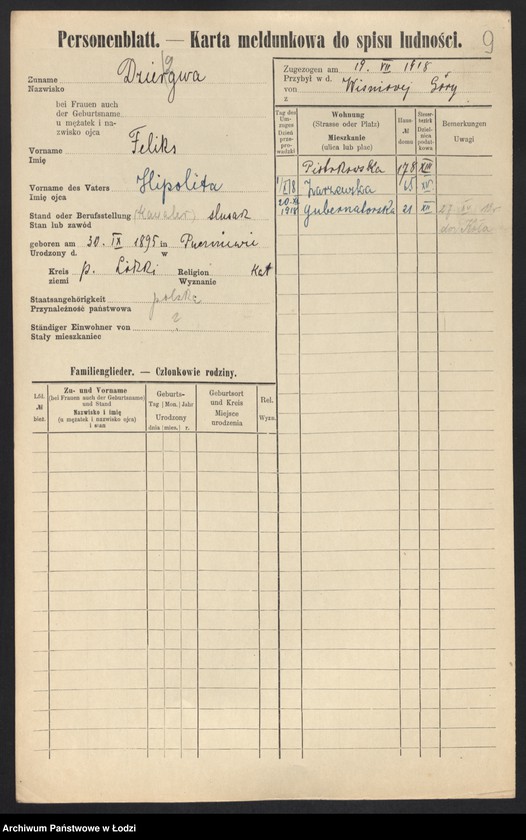 Personenblatt. — Karta meldunkowa do spisu ludności.
9
Zuname
Nazwisko
Dziergwa
bei Frauen auch
der Geburtsname
u mężatek i na-
zwisko ojca
Vorname Feliks
Imię
Vorname des Vaters Hipolita
Imię ojca
Stand oder Berufsstellung (Kawaler) ślusarz
Stan lub zawód
geboren am 30. IX 1895 in
Urodzony d. w
Kreis p. Łódzki Religion Kat
ziemi Wyznanie
Staatsangehörigkeit polska
Przynależność państwowa
Ständiger Einwohner von ?
Stały mieszkaniec
Zugezogen am 19. VII 1918
Przybył w d.
von Wisniowej Góry
z
Tag des Um-
zuges
Dzień
prze-
prowadzki
Wohnung
(Strasse oder Platz)
Mieszkanie
(ulica lub plac)
Haus-
№
domu
Steuer-
bezirk
Dziel-
nica
podat-
kowa
Bemerkungen
Uwagi
Piotrkowska 178 XIII
Zarzewska 65 XV
20. XI 1918 Gubernatorska 21 XII
do Koła
Familienglieder. — Członkowie rodziny.
Lfd.
№
bież.
Zu- und Vorname
(bei Frauen auch der Geburtsname)
und Stand
Nazwisko i imię
(u mężatek i nazwisko ojca)
i stan
Geburts-
Tag | Mon. | Jahr
Urodzony
dnia | mies. | r.
Geburtsort
und Kreis
Miejsce
urodzenia
Rel.
Wyzn.
Archiwum Państwowe w Łodzi